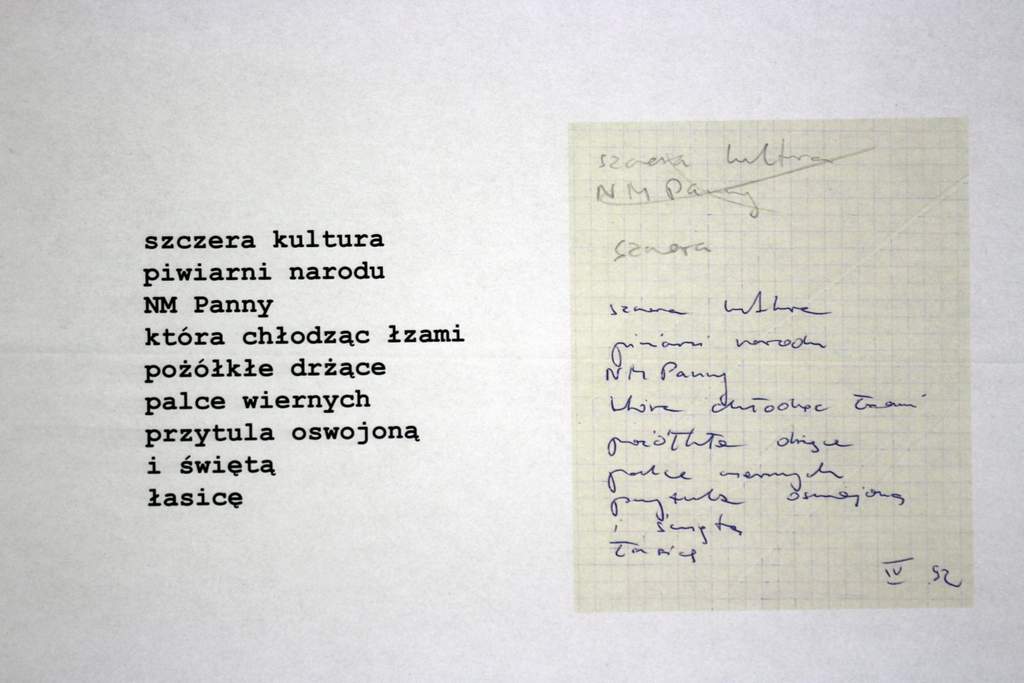 szczera kultura
piwiarni narodu
NM Panny
która chłodząc łzami
pożółkłe drżące
palce wiernych
przytula oswojoną
i świętą
łasicę
szczera kultura
NM Panny
szczera
szczera kultura
piwiarni narodu
NM Panny
która chłodząc łzami
pożółkłe drżące
palce wiernych
przytula oswojoną
i świętą
łasicę
IV 92